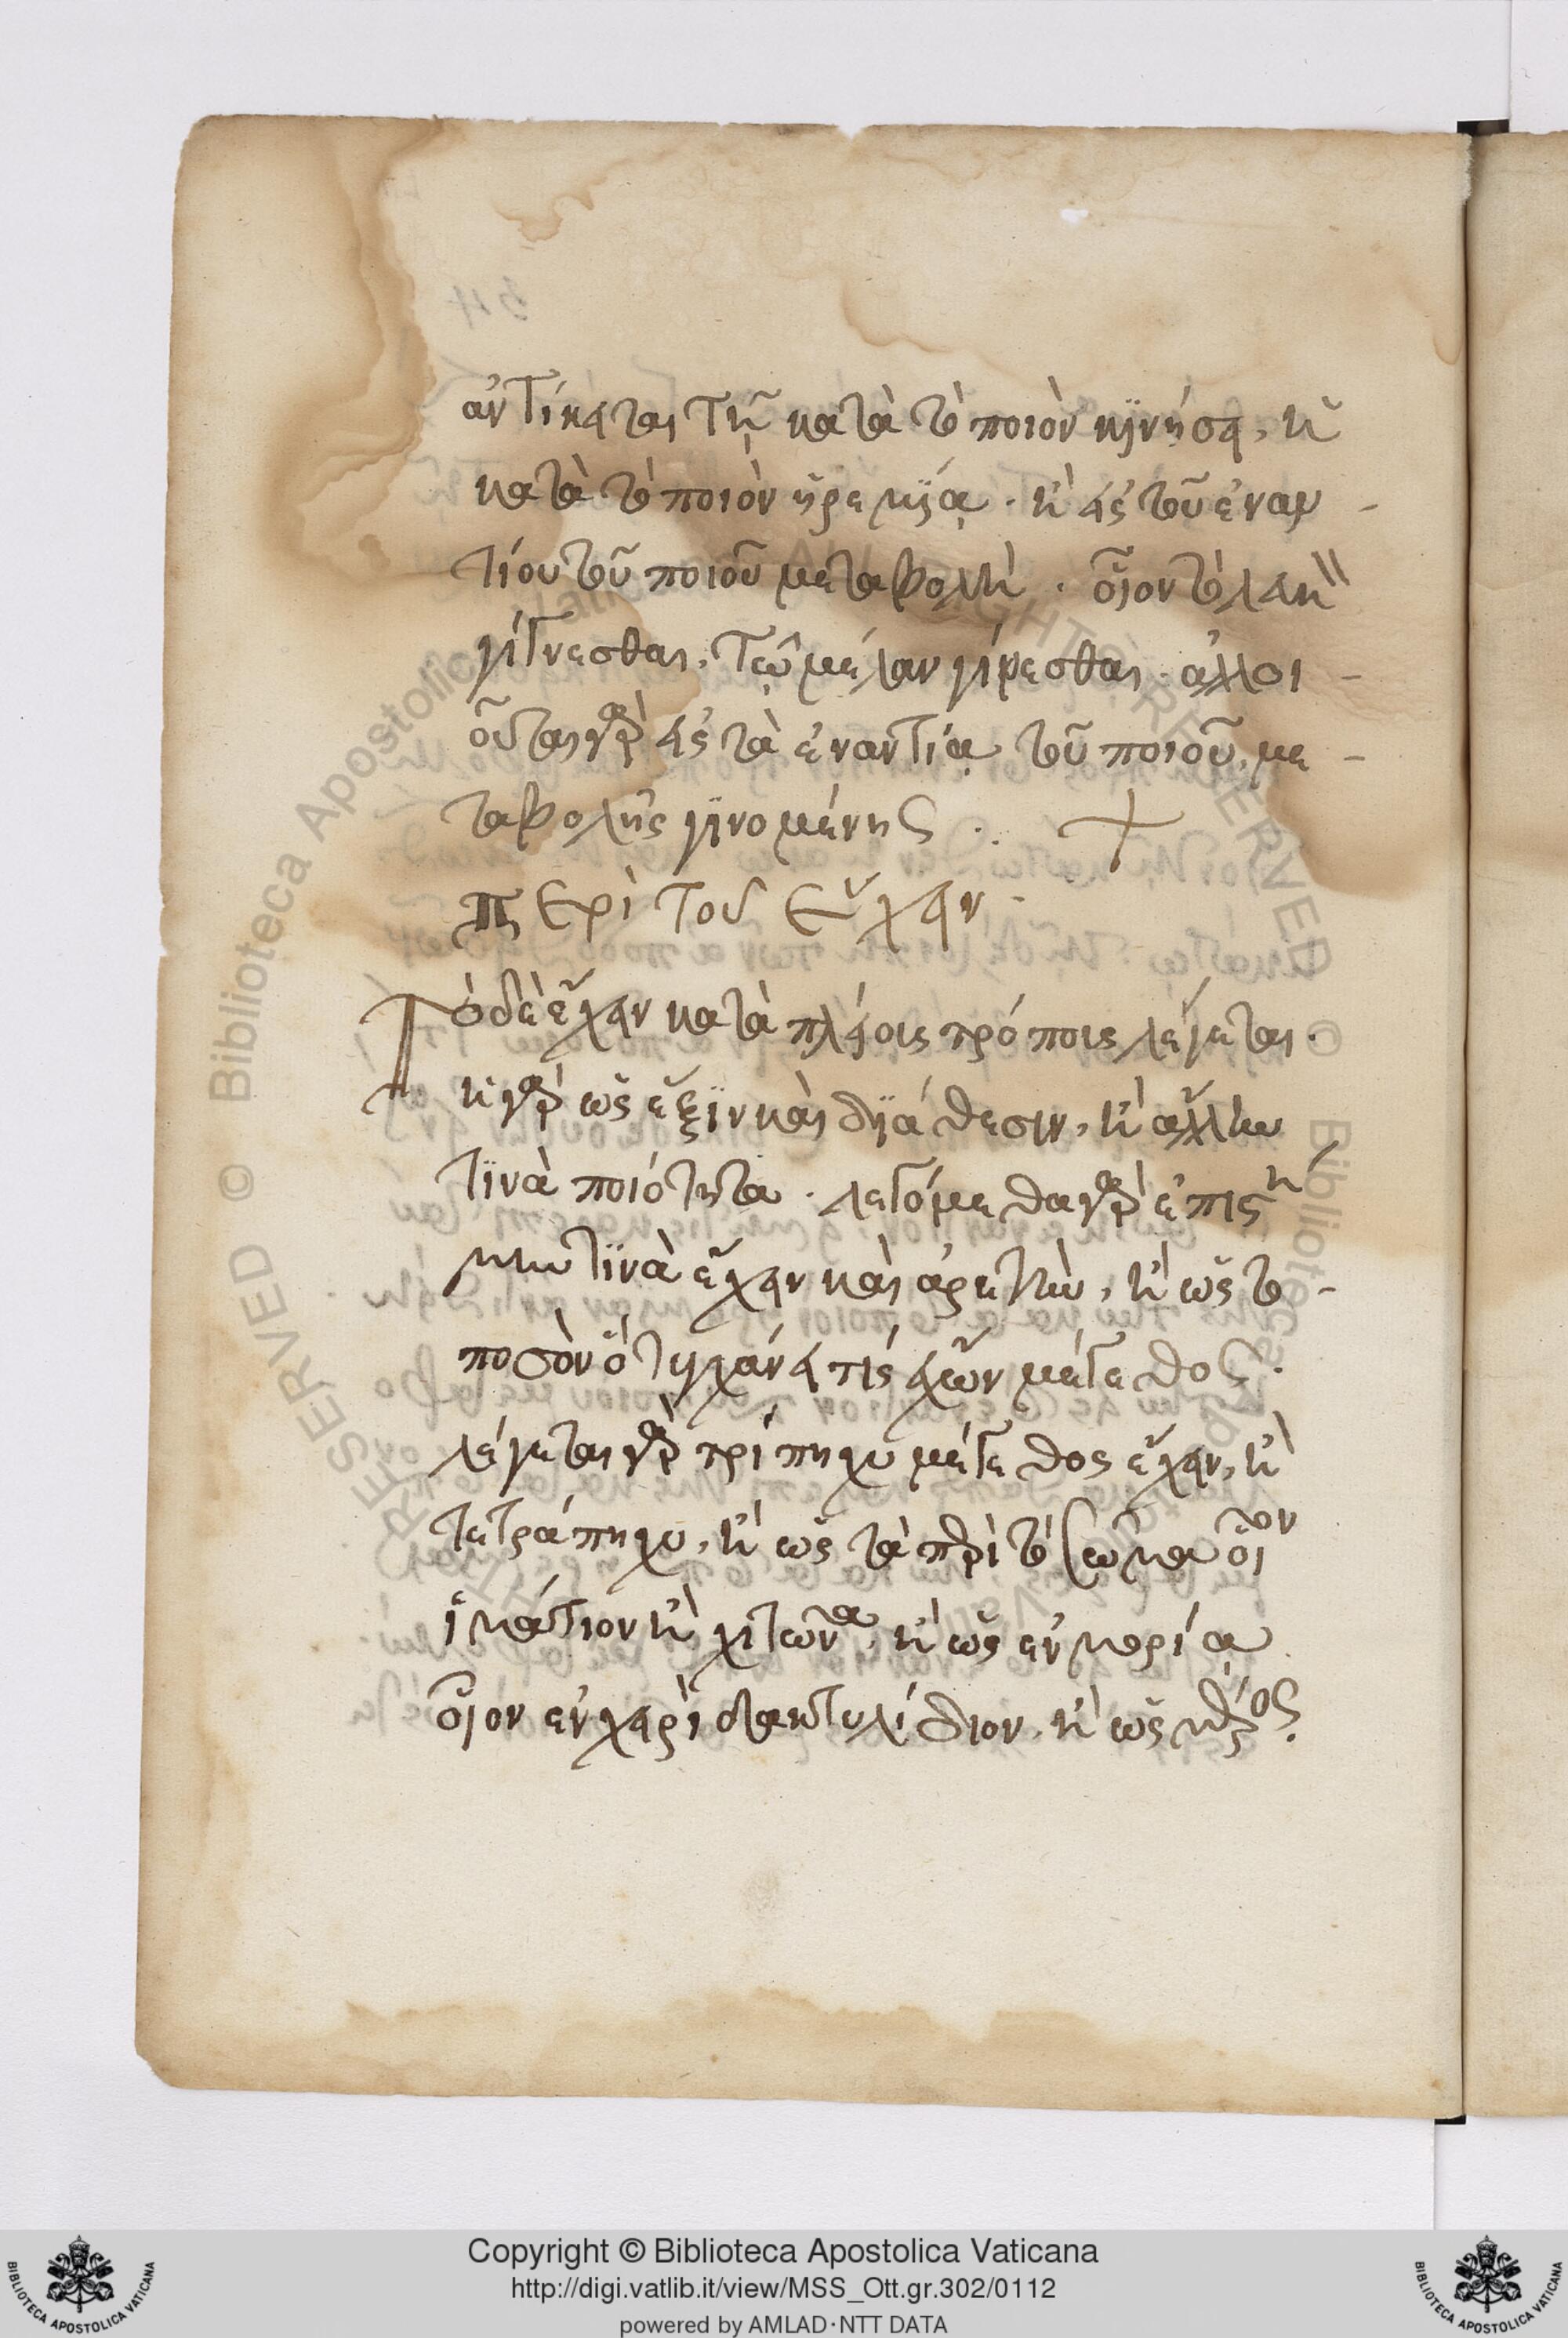 ἀντίκειται τῆ κατὰ τὸ ποιὸν κϊνήσει, ἢ
κατὰ τὸ ποιὸν ἠρεμϊᾳ. ἢ εἰς τοῦ ἐναν-
τίου τοῦ ποιοῦ μεταβολή. οἷον τὸ λευκὸν
γίγνεσθαι, τῷ μέλαν γίνεσθαι. ἀλλοι-
οῦται γὰρ εἰς τὰ ἐναντία τοῦ ποιοῦ, με-
ταβολῆς γϊνομένης. +
περὶ τοῦ ἔχειν.
Τὸ δὲ ἔχειν κατὰ πλείοις τρόποις λέγεται.
ἢ γὰρ ὡς ἕξϊν καὶ διάθεσιν, ἢ ἄλλην
τϊνὰ ποιότητα. λεγόμεθα γὰρ ἐπιστή
μην τϊνὰ ἔχειν καὶ ἀρετήν, ἢ ὡς τὸ-
ποσὸν ὃ τυγχάνει τις ἔχων μέγεθος.
λέγεται γὰρ τρίπηχυ μέγεθος ἔχειν, ἢ
τετράπηχυ, ἢ ὡς τὰ περὶ τὸ σῶμα οἷον
ἱμάτιον ἢ χιτῶνα, ἢ ὡς ἐν μορίῳ
οἷον ἐν χειρὶ δακτυλίδιον, ἢ ὡς μέρος.
Copyright © Biblioteca Apostolica Vaticana
http://digi.vatlib.it/view/MSS_Ott.gr.302/0112
powered by AMLAD·NTT DATA